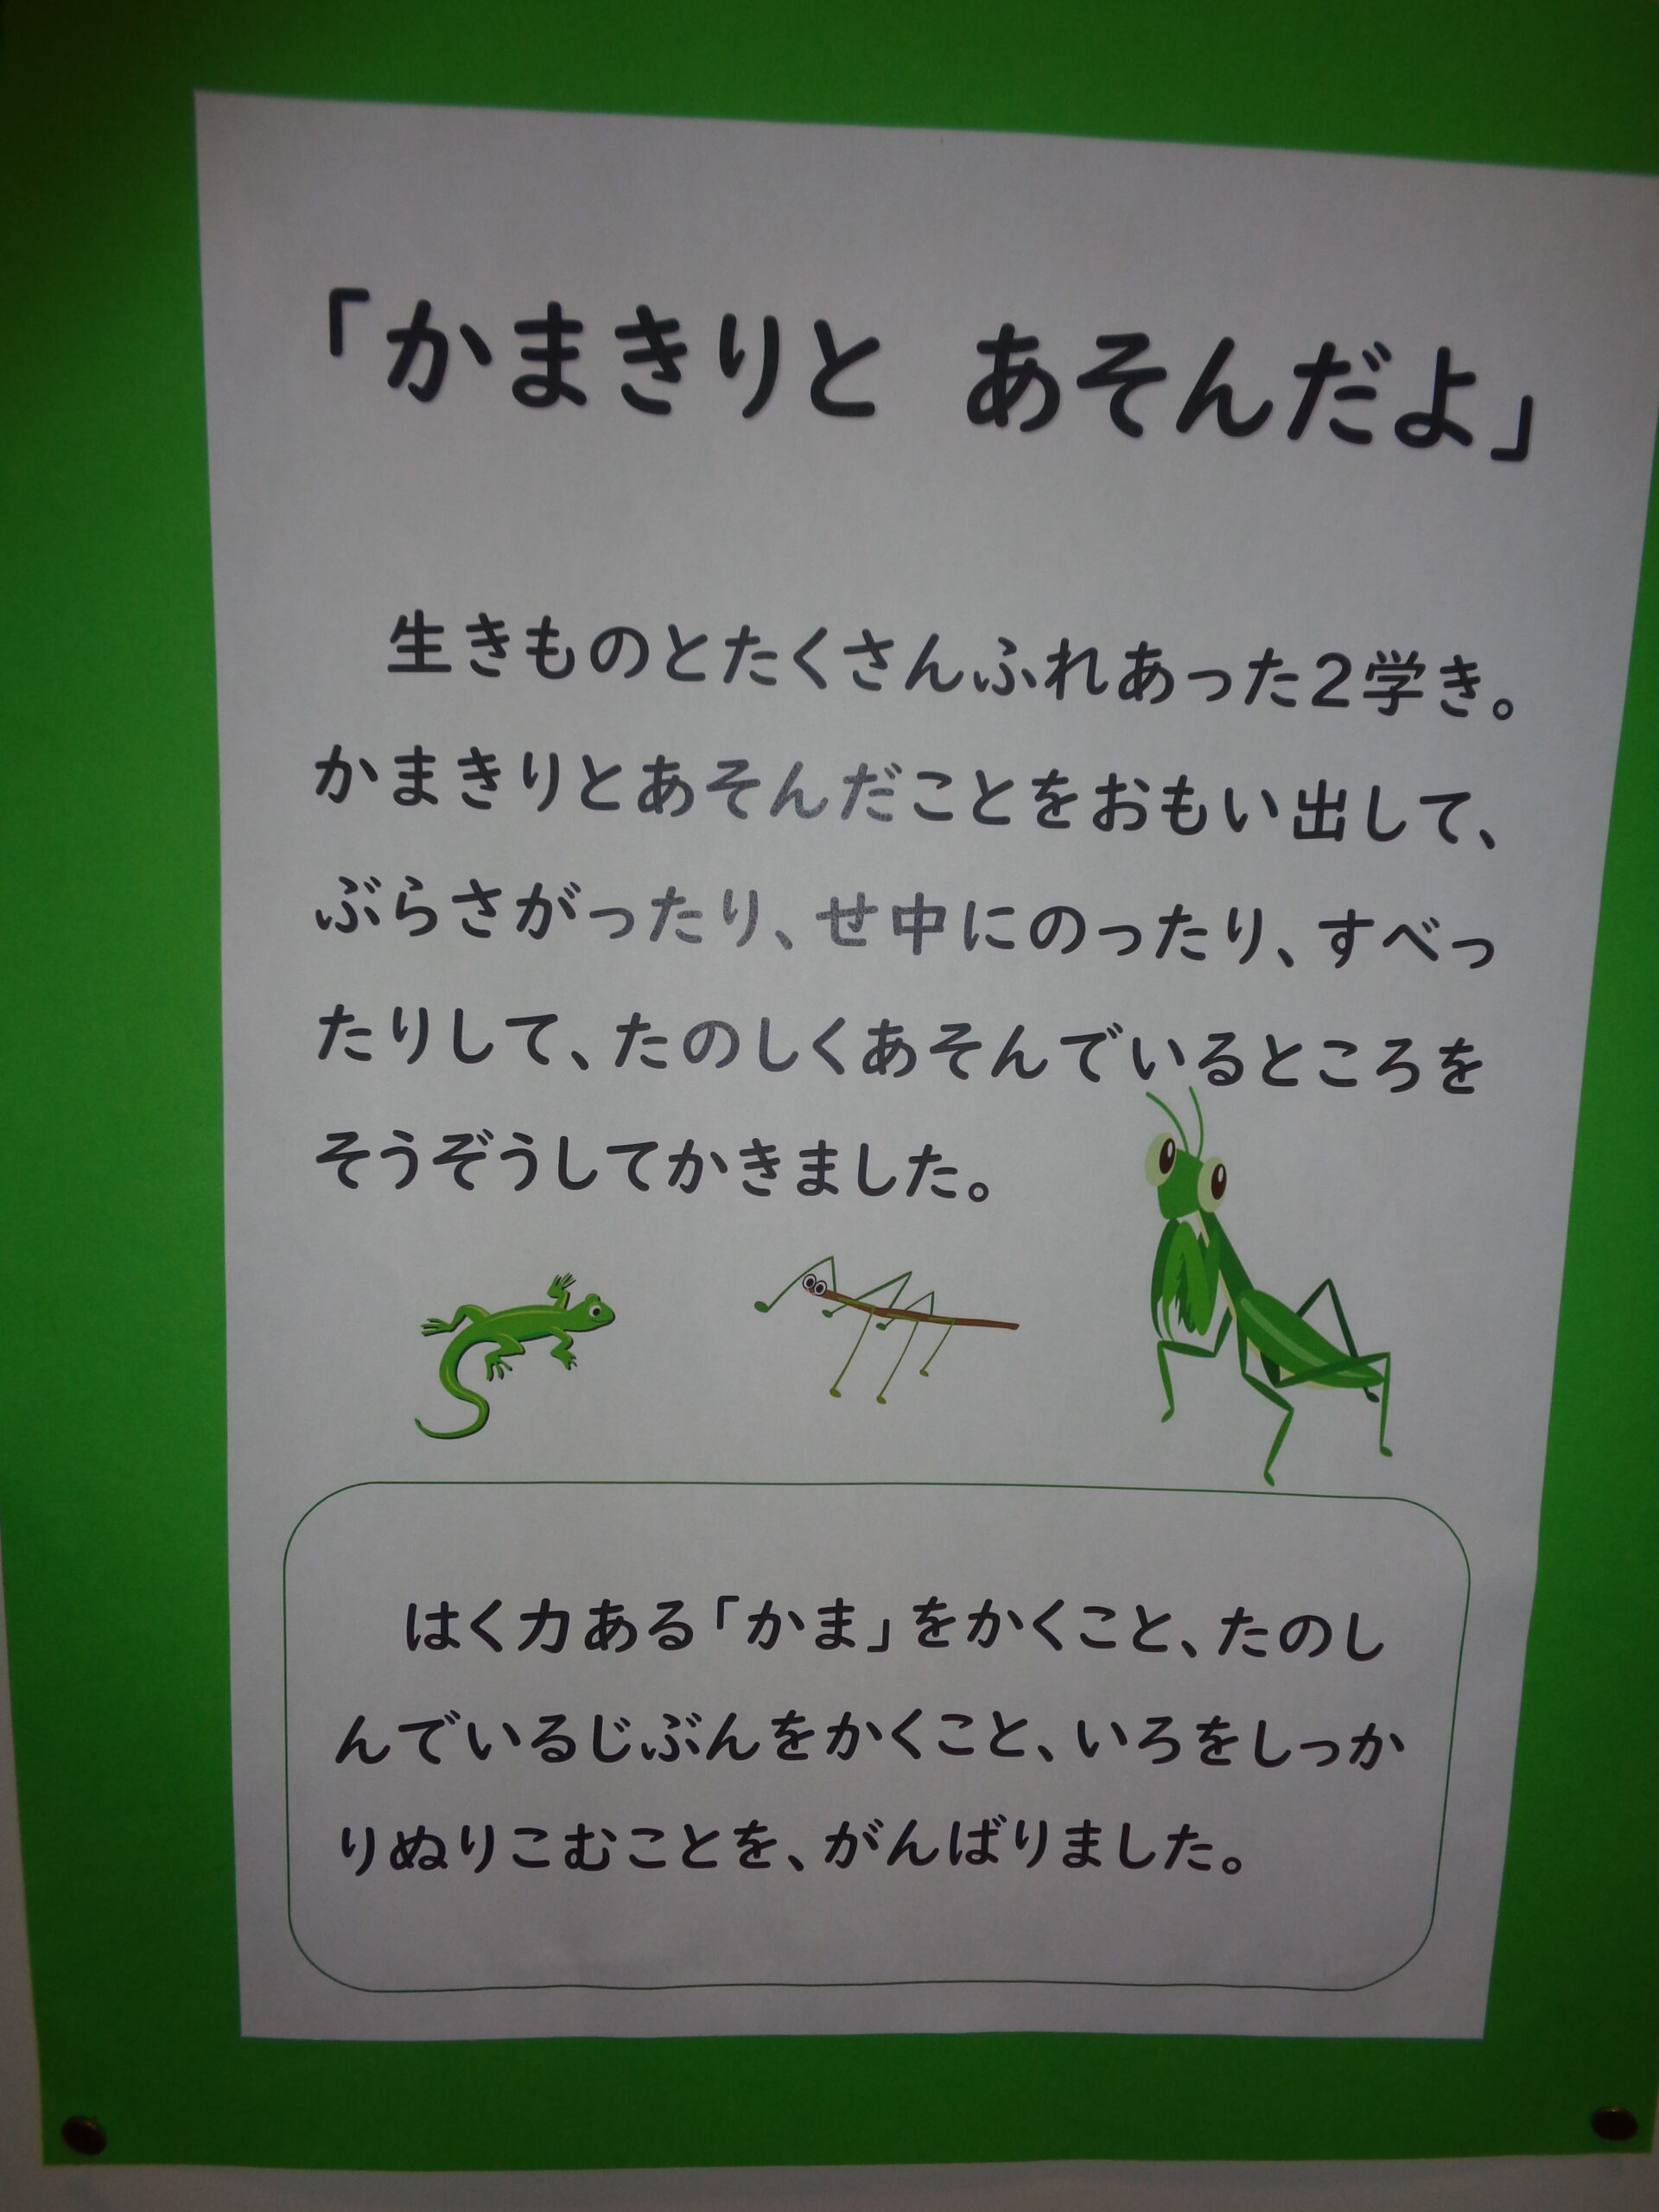 「かまきりと　あそんだよ」
生きものとたくさんふれあった２学き。
かまきりとあそんだことをおもい出して、
ぶらさがったり、せ中にのったり、すべっ
たりして、たのしくあそんでいるところを
そうぞうしてかきました。
はく力ある「かま」をかくこと、たのし
んでいるじぶんをかくこと、いろをしっか
りぬりこむことを、がんばりました。